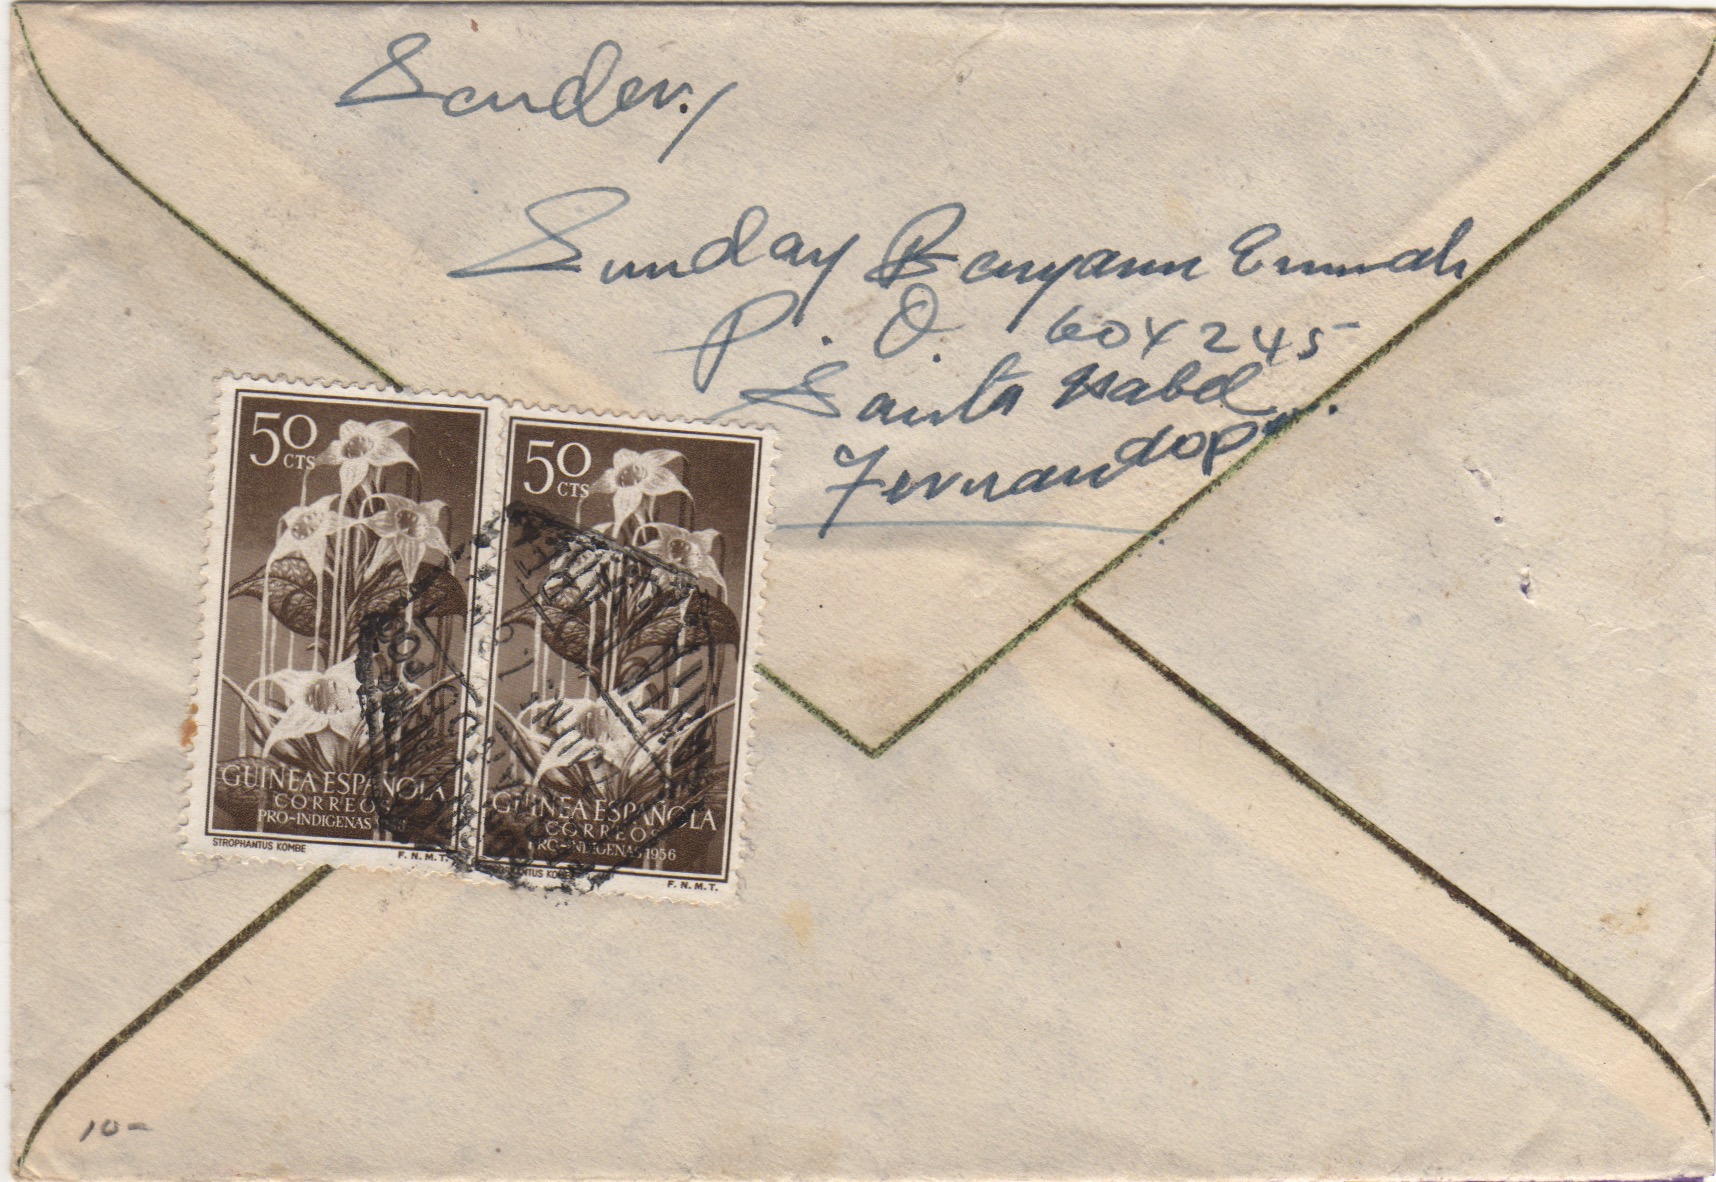 Sender,
Sunday Benyann Ennah
P. O. 60X 245
Santa Isabel
Fernandopo.
50
CTS
GUINEA ESPAÑOLA
CORREOS
PRO-INDIGENAS
STROPHANTUS KOMBE
F. N. M. T.
50
CTS
GUINEA ESPAÑOLA
CORREOS
PRO-INDIGENAS 1956
STROPHANTUS KOMBE
F. N. M. T.
10-